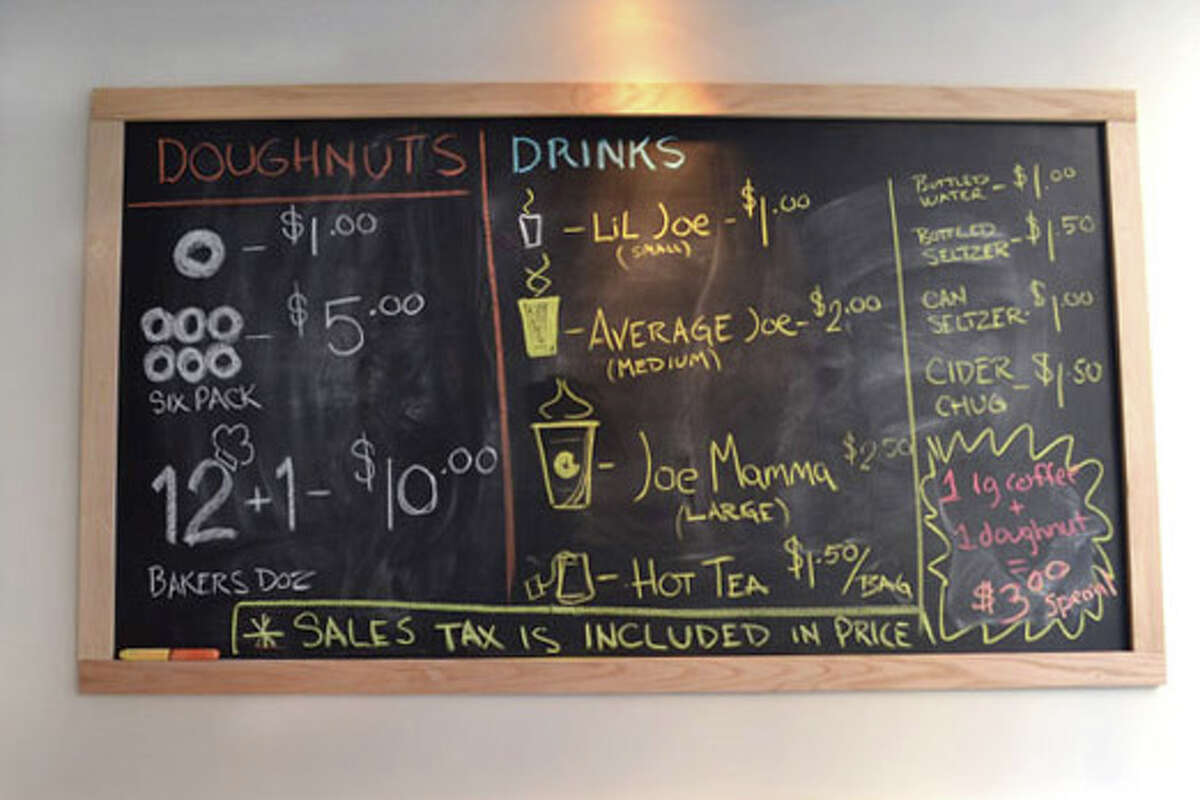 DOUGHNUTS
- $1.00
- $5.00
SIX PACK
12+1 - $10.00
BAKERS DOZ
DRINKS
- LIL JOE - $1.00
(SMALL)
- AVERAGE JOE - $2.00
(MEDIUM)
- JOE MAMMA $2.50
(LARGE)
- HOT TEA $1.50/BAG
BOTTLED
WATER - $1.00
BOTTLED
SELTZER - $1.50
CAN
SELTZER - $1.00
CIDER
CHUG - $1.50
1 lg coffee
+
1 doughnut
=
$3.00 special
* SALES TAX IS INCLUDED IN PRICE